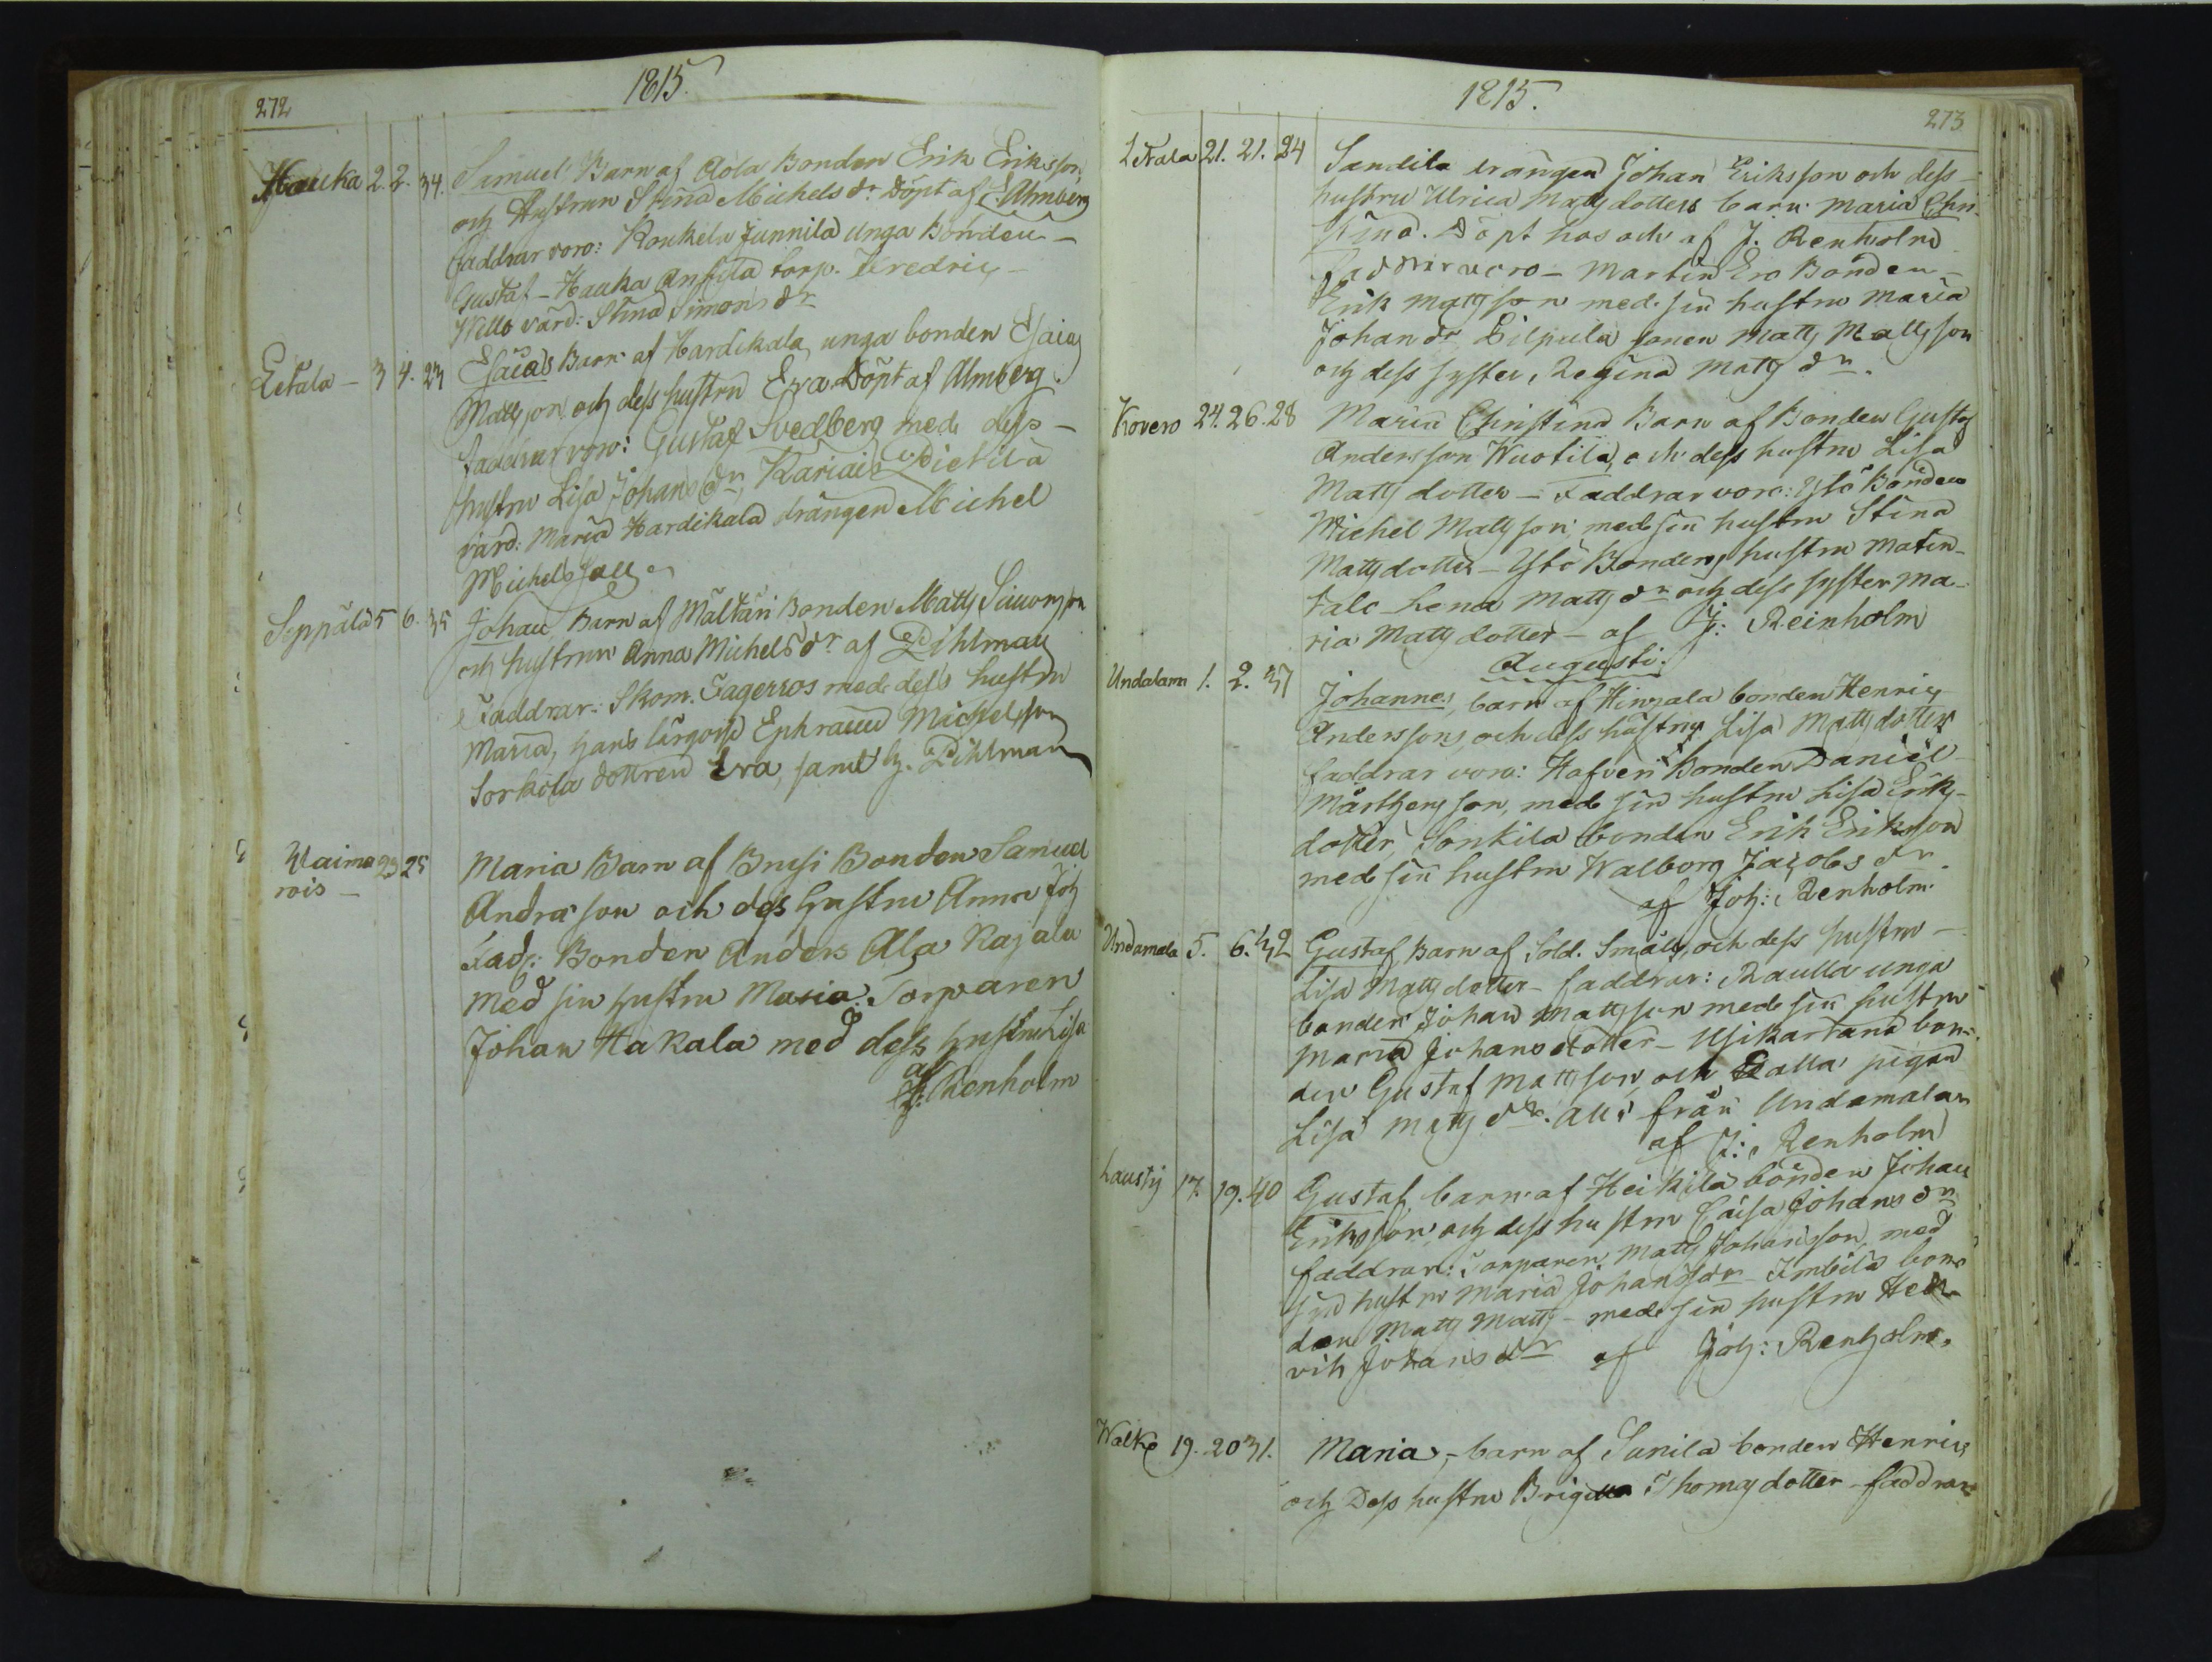 272
1815.
Hauka 2. 2. 34. Samuel Barn af Aola Bonden Erik Eriksson
och Hustrun Stina Michels dr. Döpt af E Almberg
Faddrar voro: Junnila Unga Bonden –
Gustaf – Hauka Anttila torp. Fredric –
värd: Stina Simons dr
Letala – 3 4. 23 Esaias Barn af Hardikala unga bonden Esaias
Mattsson och dess hustru Eva. Döpt af Almberg.
faddrar voro: Gustaf Svedberg med dess –
hustru Lisa Johans dr, Kariais Pietilä
värd: Maria Hardikala drängen Michel
Michelsson
Seppälä 5 6. 35 Johan Barn af Mältäri Bonden Matts Simonsson
och hustrun Anna Michels dr. af Pihlman
Faddrar: Skom. Fagerros med dess hustru
Maria, hans lärgosse Ephraim Michelsson
Sorkola dottren Eva, samt hr. Pihlman
Waima 23 25 Maria Barn af Brusi Bonden Samuel
rois – Andersson och des hustru Anna Joh
Fadr: Bonden Anders Ala Kajala
med sin hustru Maria. Torparen
Johan Hakala med dess hustru Lisa
af
J: Renholm
1815.
273
Letala 21. 21. 24 Sandila drängen Johan Eriksson och dess –
hustru Ulrica Mattsdotters barn Maria Chri-
stina. Döpt hos och af J. Renholm
faddrar voro – Martin Ero Bonden –
Erik Mattsson med sin hustru Maria
Johans dr Pilpula sonen Matts Mattsson
och dess syster, Regina Matts dr.
Kovero 24. 26. 28 Maria Christina Barn af Bonden Gustaf
Andersson Wuotila, och dess hustru Lisa
Matts dotter – Faddrar voro: Yltö Bonden
Michel Mattsson med sin hustru Stina
Mattsdotter – Yltö Bondens hustru Matin-
talo Lena Matts dr och dess syster Ma-
ria Mattsdotter – af J: Reinholm
Augusti.
Undalam 1. 2. 37 Johannes, barn af Hinzala bonden Henric
Anderssons, och dess hustru Lisa Mattsdotter
faddrar voro: Hafveri Bonden Daniel –
Mårthensson, med sin hustru Lisa Eriks-
dotter, Sonkila bonden Erik Eriksson
med sin hustru Walborg Jacobs dr.
af Joh: Renholm
Undamala 5. 6. 42 Gustaf Barn af Sold. Småll, och dess hustru –
Lisa Mattsdotter – faddrar: Raulla unga
bonden Johan Mattsson med sin hustru
Maria Johansdotter – Usikartano bon-
den Gustaf Mattsson, och Dalla pigan
Lisa Matts dr. all från Undamalan
af J: Renholm
Lausty 17. 19. 40 Gustaf, barn af Heikilä bonden Johan
Eriksson och dess hustru Caisa Johans dr
faddrar: Torparen Matts Johansson, med
sin hustru Maria Johans dr – Imbilä bon-
den Matts Matts – med sin hustru Hed-
vik Johans dr af Joh: Renholm.
Walke 19. 20 31. Maria, – barn af Sunila bonden Henric
och Dess hustru Brigitta Thomasdotter – faddrar